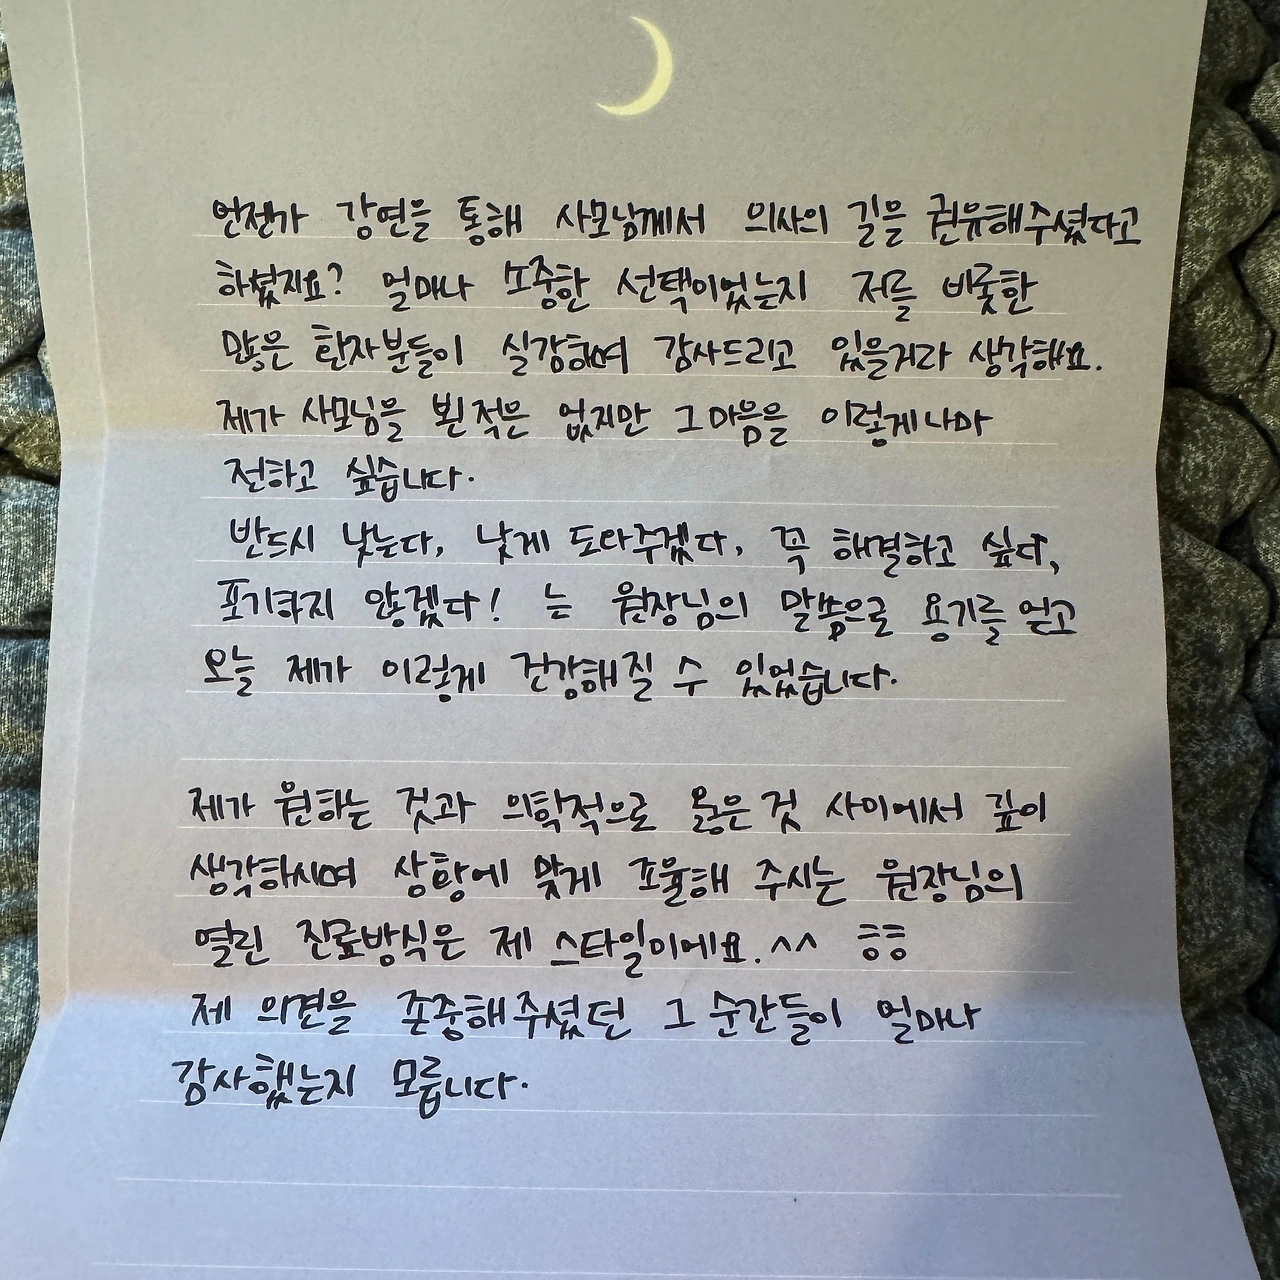 언젠가 강연을 통해 사모님께서 의사의 길을 권유해주셨다고
하셨지요? 얼마나 소중한 선택이었는지 저를 비롯한
많은 환자분들이 실감하며 감사드리고 있을거라 생각해요.
제가 사모님을 뵌 적은 없지만 그 마음을 이렇게나마
전하고 싶습니다.
반드시 낫는다, 낫게 도와주겠다, 꼭 해결하고 싶다,
포기하지 않겠다! 는 원장님의 말씀으로 용기를 얻고
오늘 제가 이렇게 건강해질 수 있었습니다.
제가 원하는 것과 의학적으로 옳은 것 사이에서 깊이
생각하시며 상황에 맞게 조율해 주시는 원장님의
열린 진료방식은 제 스타일이에요. ^^ ㅎㅎ
제 의견을 존중해주셨던 그 순간들이 얼마나
감사했는지 모릅니다.